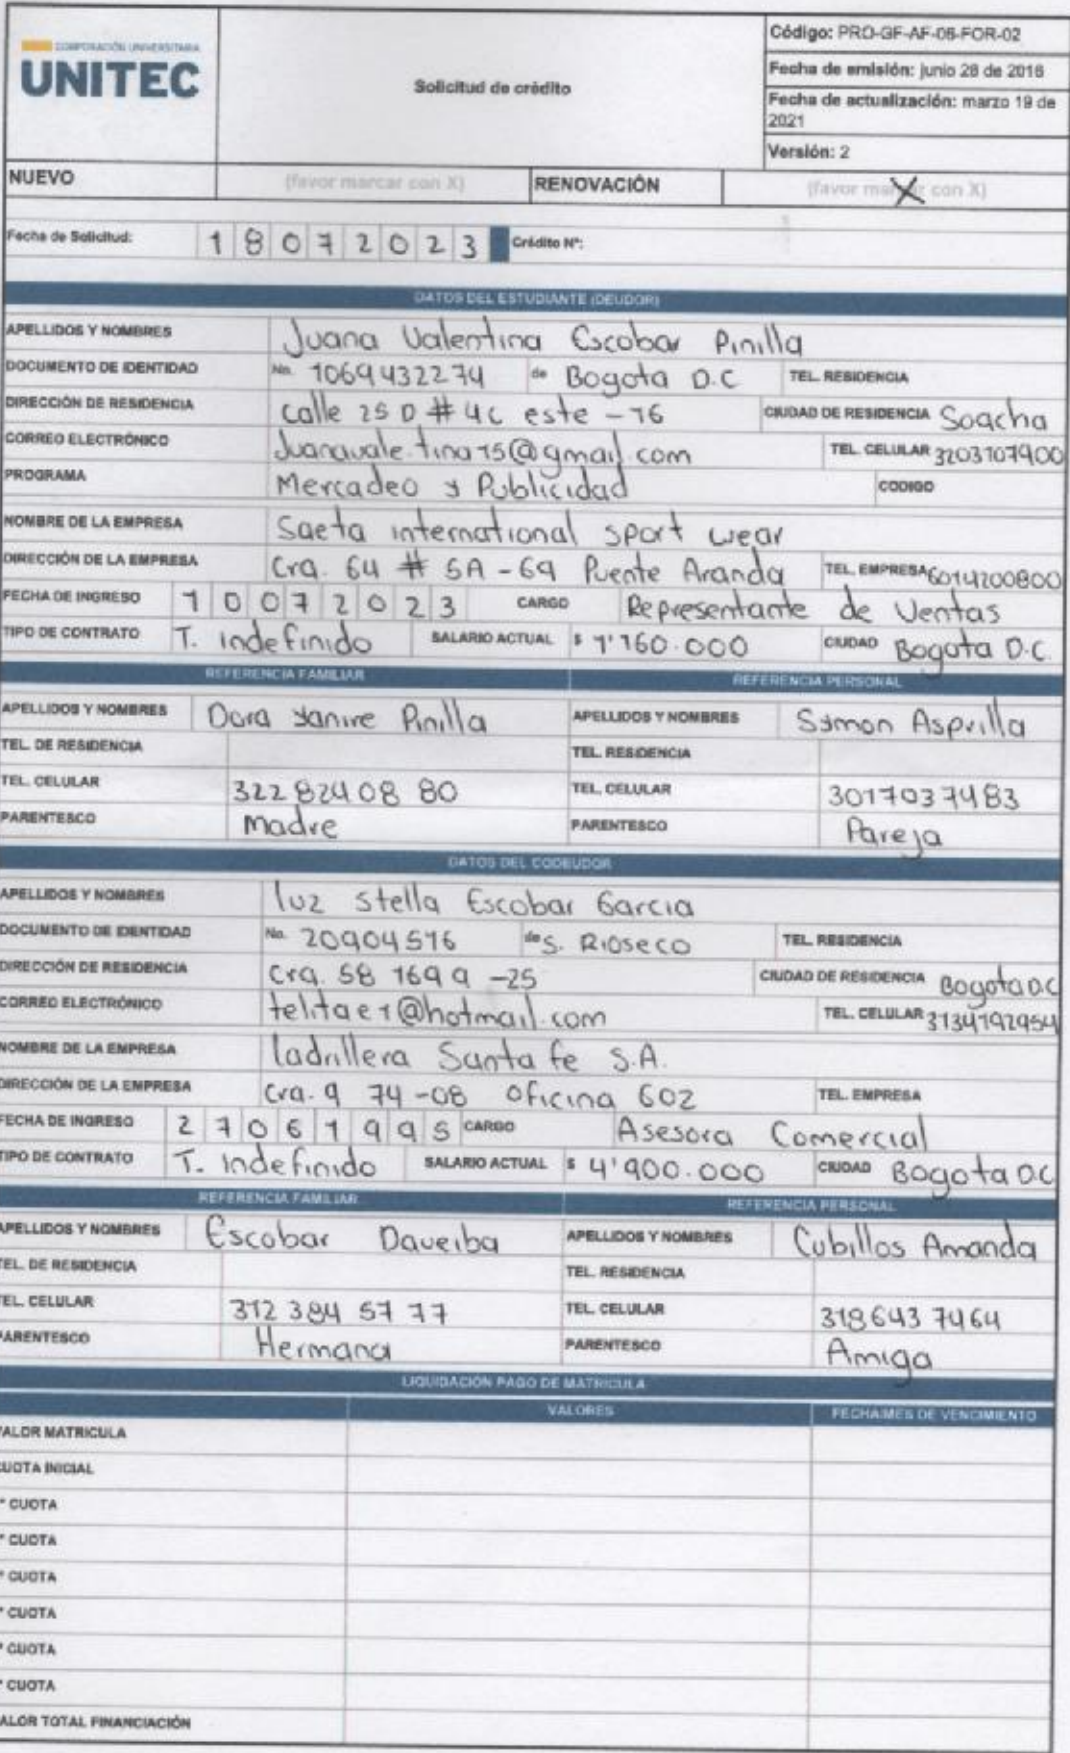 CORPORACIÓN UNIVERSITARIA
UNITEC
Solicitud de crédito
Código: PRO-GF-AF-06-FOR-02
Fecha de emisión: junio 28 de 2016
Fecha de actualización: marzo 19 de
2021
Versión: 2
NUEVO (favor marcar con X) RENOVACIÓN (favor marcar con X) X
Fecha de Solicitud: 18072023 Crédito N°:
DATOS DEL ESTUDIANTE (DEUDOR)
APELLIDOS Y NOMBRES Juana Valentina Escobar Pinilla
DOCUMENTO DE IDENTIDAD No. 1069432274 de Bogota D.C TEL. RESIDENCIA
DIRECCIÓN DE RESIDENCIA calle 25 D # 4c este - 16 CIUDAD DE RESIDENCIA Soacha
CORREO ELECTRÓNICO Juanavale.tina15@gmail.com TEL. CELULAR 3203107900
PROGRAMA Mercadeo y Publicidad CODIGO
NOMBRE DE LA EMPRESA Saeta international sport wear
DIRECCIÓN DE LA EMPRESA Cra. 64 # 5A - 69 Puente Aranda TEL. EMPRESA 6014200800
FECHA DE INGRESO 10072023 CARGO Representante de Ventas
TIPO DE CONTRATO T. indefinido SALARIO ACTUAL $ 1'160.000 CIUDAD Bogota D.C.
REFERENCIA FAMILIAR REFERENCIA PERSONAL
APELLIDOS Y NOMBRES Dora Yanire Pinilla APELLIDOS Y NOMBRES Symon Asprilla
TEL. DE RESIDENCIA TEL. RESIDENCIA
TEL. CELULAR 322 824 08 80 TEL. CELULAR 3017037483
PARENTESCO Madre PARENTESCO Pareja
DATOS DEL CODEUDOR
APELLIDOS Y NOMBRES luz stella Escobar Garcia
DOCUMENTO DE IDENTIDAD No. 20904516 de S. Rioseco TEL. RESIDENCIA
DIRECCIÓN DE RESIDENCIA Cra. 58 169 a - 25 CIUDAD DE RESIDENCIA Bogota D.C
CORREO ELECTRÓNICO telitae1@hotmail.com TEL. CELULAR 3134192954
NOMBRE DE LA EMPRESA ladrillera Santa fe S.A.
DIRECCIÓN DE LA EMPRESA Cra. 9 74 - 08 oficina 602 TEL. EMPRESA
FECHA DE INGRESO 27061995 CARGO Asesora Comercial
TIPO DE CONTRATO T. indefinido SALARIO ACTUAL $ 4'900.000 CIUDAD Bogota D.C
REFERENCIA FAMILIAR REFERENCIA PERSONAL
APELLIDOS Y NOMBRES Escobar Daveiba APELLIDOS Y NOMBRES Cubillos Amanda
TEL. DE RESIDENCIA TEL. RESIDENCIA
TEL. CELULAR 312 384 57 77 TEL. CELULAR 318 643 7464
PARENTESCO Hermana PARENTESCO Amiga
LIQUIDACIÓN PAGO DE MATRICULA
VALORES FECHA/MES DE VENCIMIENTO
VALOR MATRICULA
CUOTA INICIAL
° CUOTA
° CUOTA
° CUOTA
° CUOTA
° CUOTA
° CUOTA
VALOR TOTAL FINANCIACIÓN